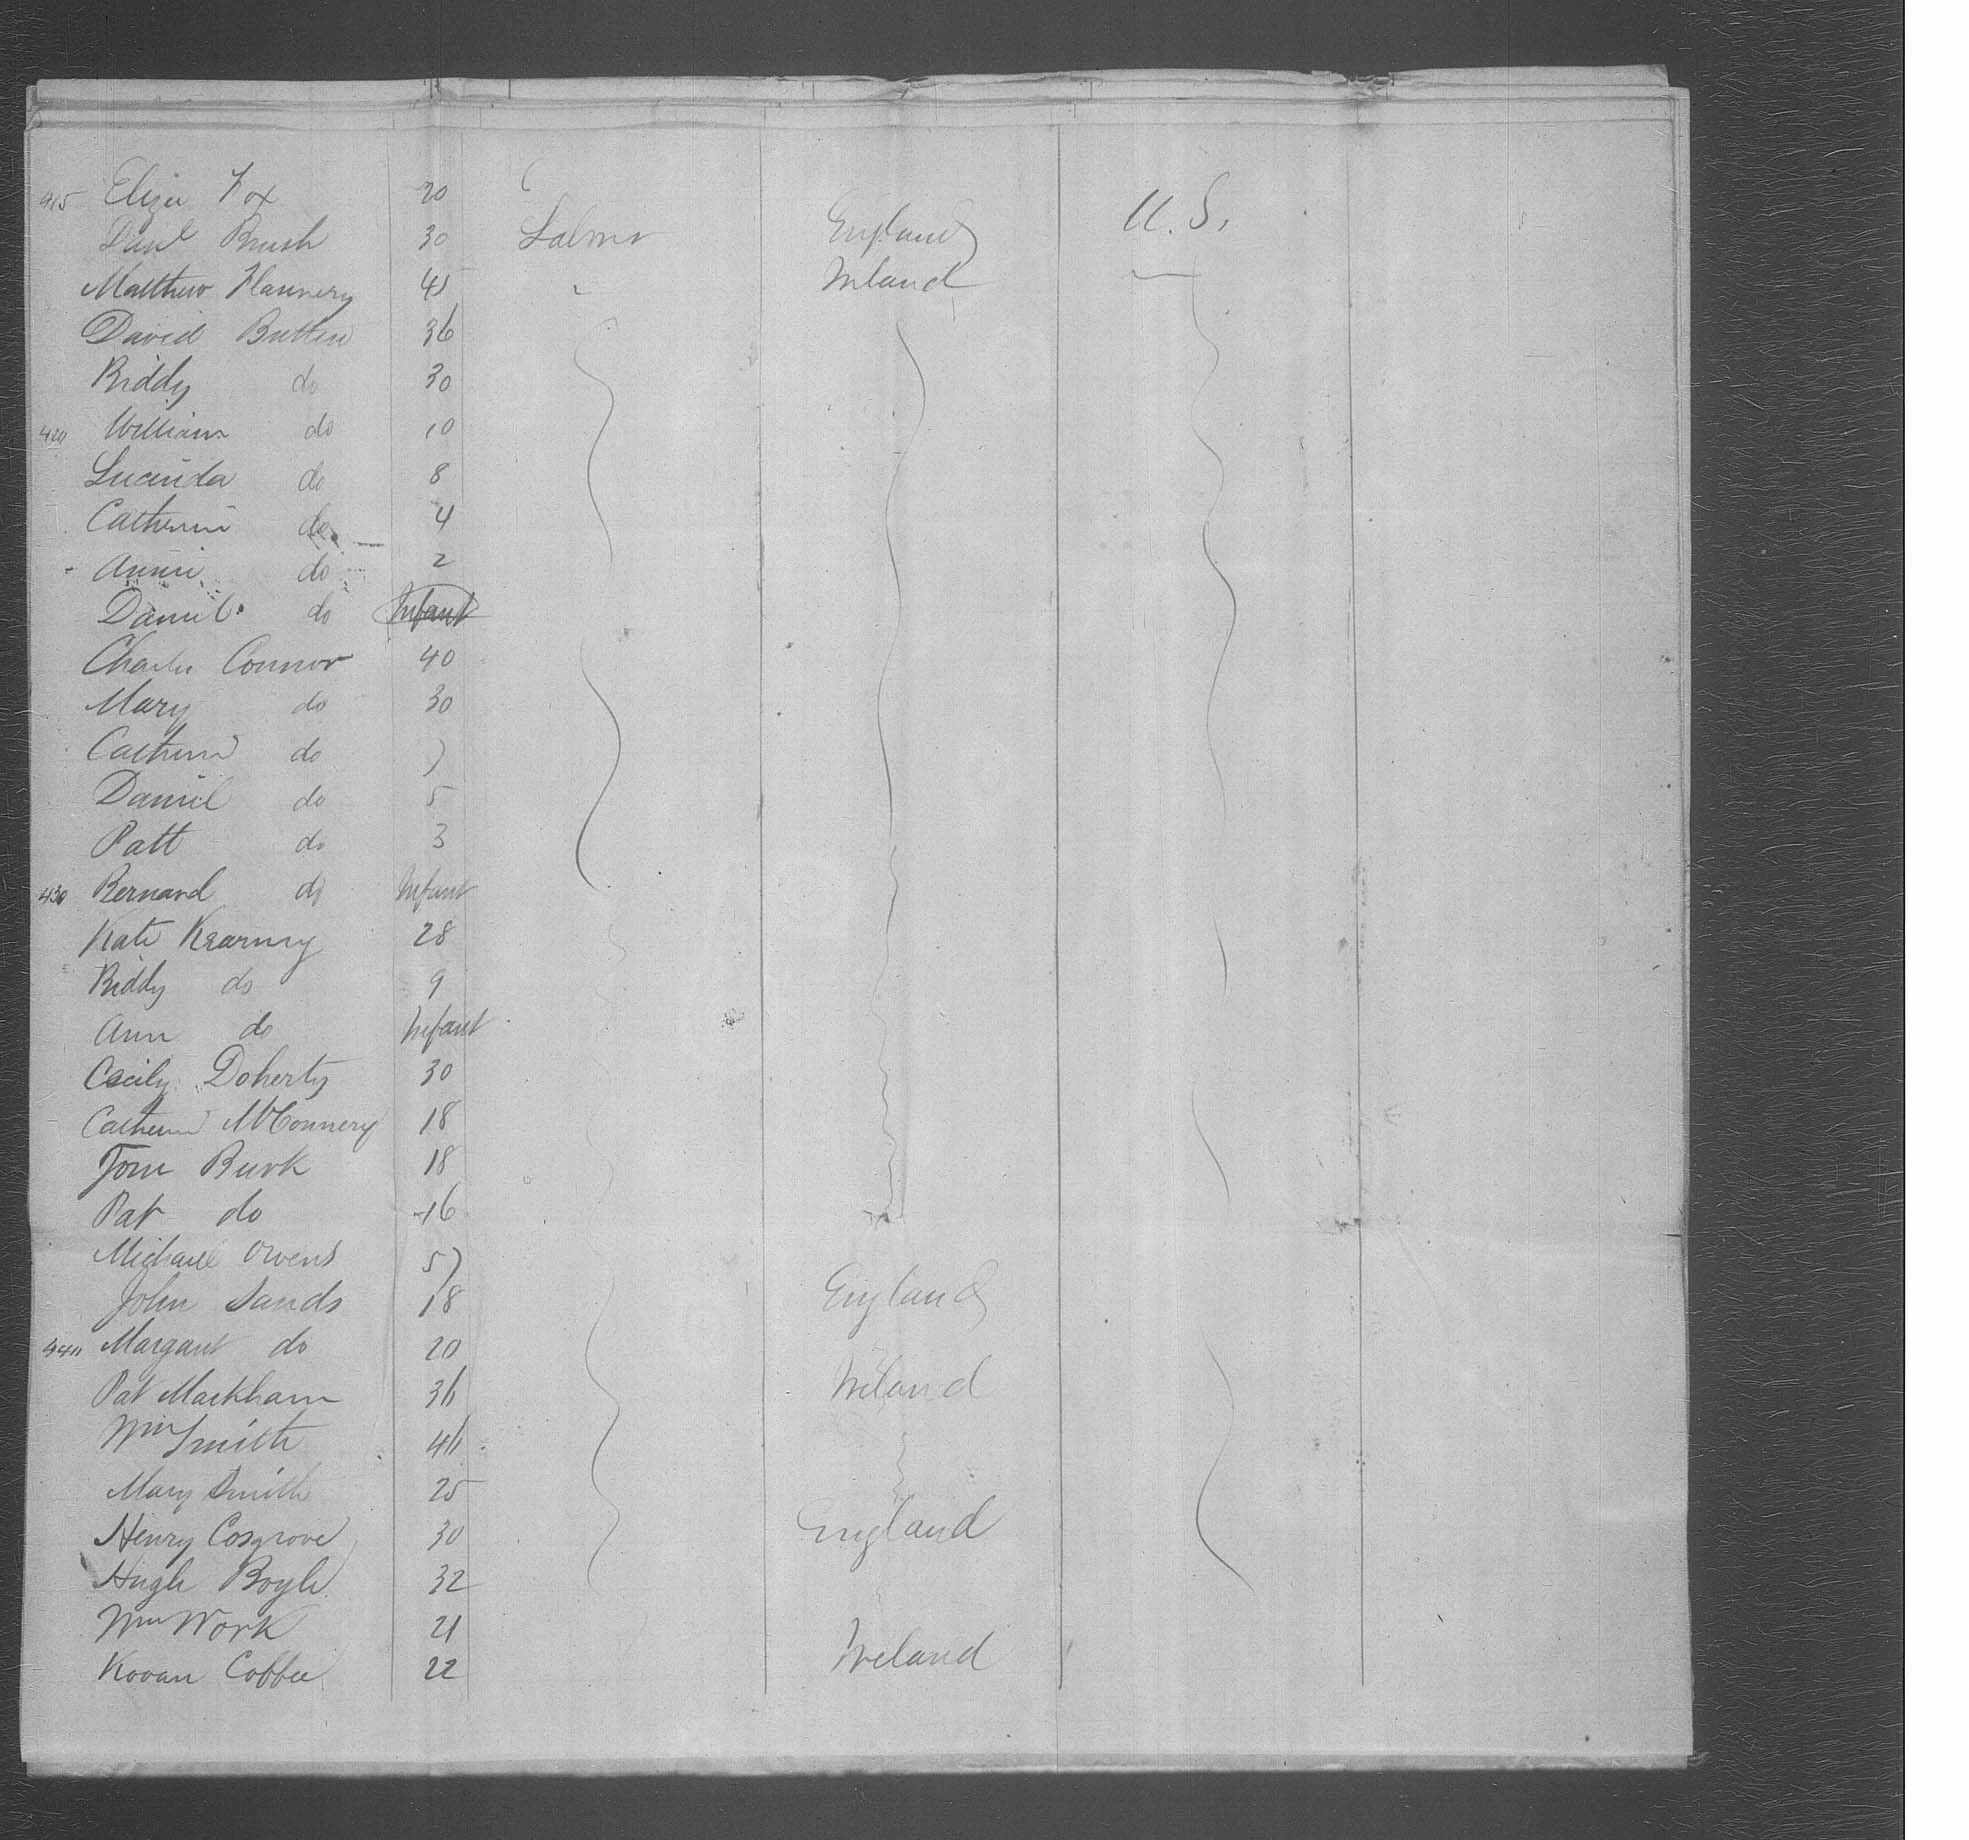 415 Eliza Fox 20
Danl Brush 30 Labour England U.S.
Matthew Flannery 45 " Ireland —
David Butler 36
Biddy do 30
420 William do 10
Lucinda do 8
Catherine do 4
Annie do 2
Daniel do Infant
Charles Connor 40
Mary do 30
Catherine do 7
Daniel do 5
Patt do 3
430 Bernard do Infant
Kate Kearney 28
Biddy do 9
Ann do Infant
Cecily Doherty 30
Catherine McConnery 18
Tom Burk 18
Pat do 16
Michael Owens 57
John Sands 18 England
440 Margaret do 20
Pat Markham 36 Ireland
Wm Smith 46
Mary Smith 25
Henry Cosgrove 30 England
Hugh Boyle 32
Wm Work 21
22 Ireland